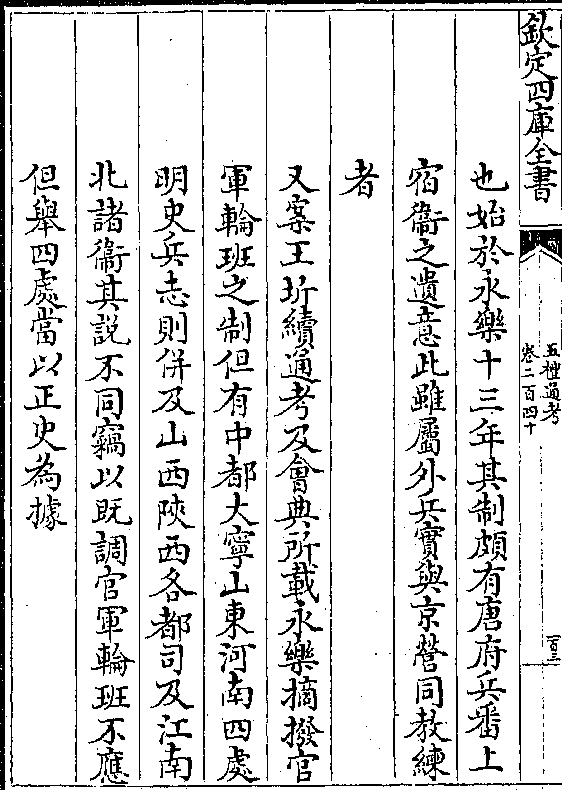 欽定四庫全書
五禮通考
卷二百四十
百三
也始於永樂十三年其制頗有唐府兵番上
宿衞之遺意此雖屬外兵實與京營同教練
者
又案王圻續通考及會典所載永樂摘撥官
軍輪班之制但有中都大寧山東河南四處
明史兵志則併及山西陜西各都司及江南
北諸衞其説不同竊以既調官軍輪班不應
但舉四處當以正史為據